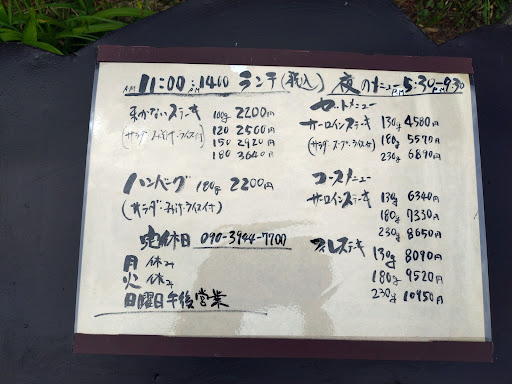 AM 11:00 - PM 14:00 ランチ(税込)
赤かみステーキ 100g 2200円
(サラダ・みそ汁・ライス付) 120 2560円
150 2920円
180 3640円
ハンバーグ 180g 2200円
(サラダ・みそ汁・ライス付)
定休日 090-3944-7700
月 休み
火 休み
日曜日午後営業
夜のメニュー PM 5:30-PM 9:30
セットメニュー
サーロインステーキ 130g 4580円
(サラダ・スープ・ライス付) 180g 5570円
230g 6890円
コースメニュー
サーロインステーキ 130g 6340円
180g 7330円
230g 8650円
フィレステーキ 130g 8090円
180g 9520円
230g 10950円